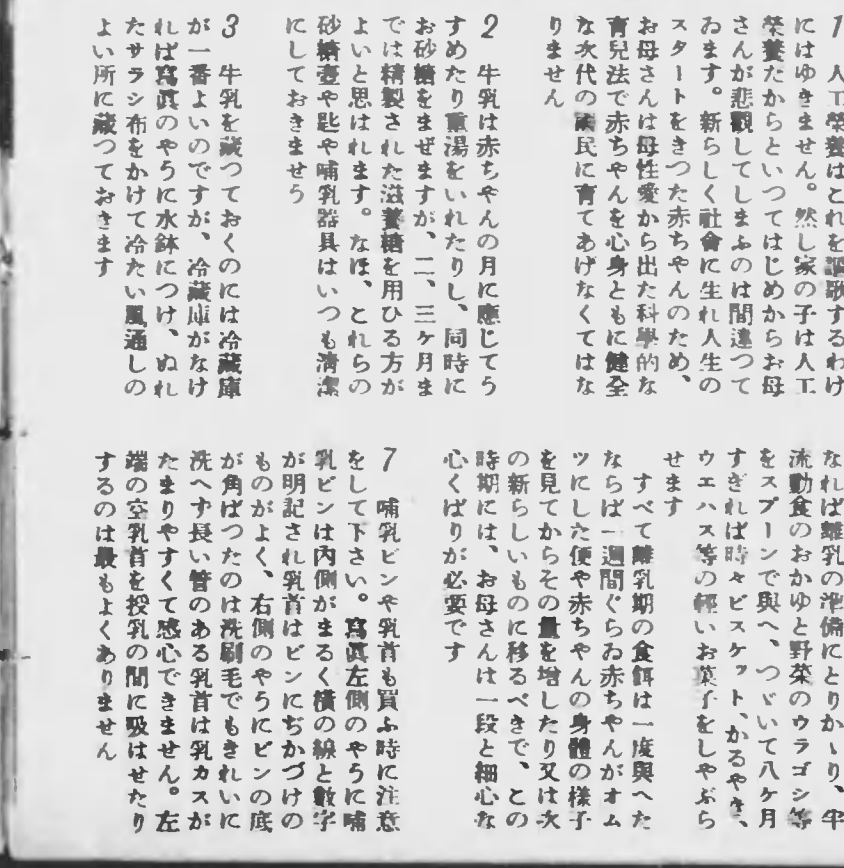 1 人工榮養はこれを謳歌するわけ
にはゆきません。然し家の子は人工
榮養だからといつてはじめからお母
さんが悲觀してしまふのは間違つて
ゐます。新らしく社會に生れ人生の
スタートをきつた赤ちやんのため、
お母さんは母性愛から出た科學的な
育兒法で赤ちやんを心身ともに健全
な次代の國民に育てあげなくてはな
りません
2 牛乳は赤ちやんの月に應じてう
すめたり重湯をいれたりし、同時に
お砂糖をまぜますが、二、三ヶ月ま
では精製された滋養糖を用ひる方が
よいと思はれます。なほ、これらの
砂糖壺や匙や哺乳器具はいつも清潔
にしておきませう
3 牛乳を藏つておくのには冷藏庫
が一番よいのですが、冷藏庫がなけ
れば寫眞のやうに水鉢につけ、ぬれ
たサラシ布をかけて冷たい風通しの
よい所に藏つておきます
なれば離乳の準備にとりかゝり、半
流動食のおかゆと野菜のウラゴシ等
をスプーンで與へ、つゞいて八ケ月
すぎれば時々ビスケット、かるやき、
ウエハス等の輕いお菓子をしやぶら
せます
すべて離乳期の食餌は一度與へた
ならば一週間ぐらゐ赤ちやんがオム
ツにした便や赤ちやんの身體の樣子
を見てからその量を增したり又は次
の新らしいものに移るべきで、この
時期には、お母さんは一段と細心な
心くばりが必要です
7 哺乳ビンや乳首も買ふ時に注意
をして下さい。寫眞左側のやうに哺
乳ビンは内側がまるく橫の線と數字
が明記され乳首はビンにぢかづけの
ものがよく、右側のやうにビンの底
が角ばつたのは洗刷毛でもきれいに
洗へず長い管のある乳首は乳カスが
たまりやすくて感心できません。左
端の空乳首を授乳の間に吸はせたり
するのは最もよくありません